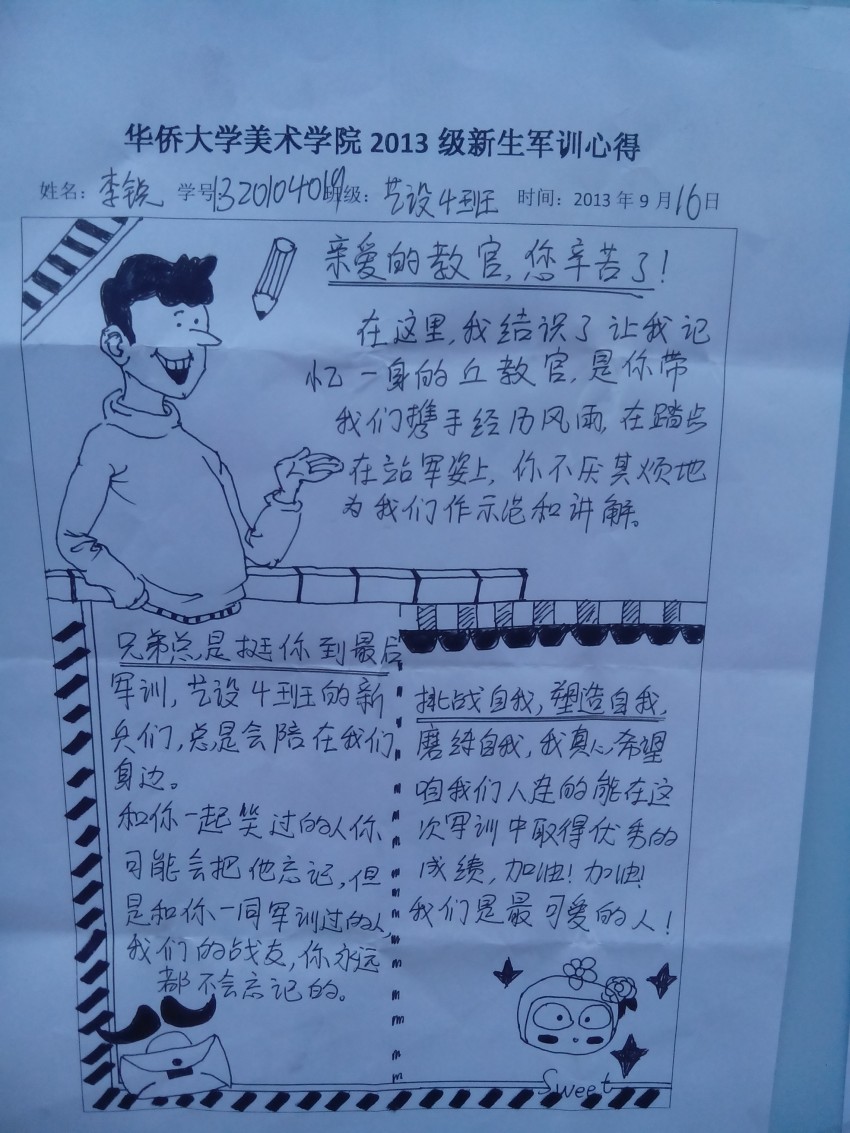 华侨大学美术学院 2013 级新生军训心得
姓名：李锐 学号:1320104019 班级：艺设4班 时间：2013 年 9 月16日
亲爱的教官，您辛苦了！
在这里，我结识了让我记
忆一身的丘教官，是你带
我们携手经历风雨，在踏步
在站军姿上，你不厌其烦地
为我们作示范和讲解。
兄弟总是挺你到最后
军训，艺设4班的新
兵们，总是会陪在我们
身边。
和你一起笑过的人你
可能会把他忘记，但
是和你一同军训过的人，
我们的战友，你永远
都不会忘记的。
挑战自我，塑造自我，
磨练自我，我真心希望
咱我们人连的能在这
次军训中取得优秀的
成绩，加油！加油！
我们是最可爱的人！
Sweet